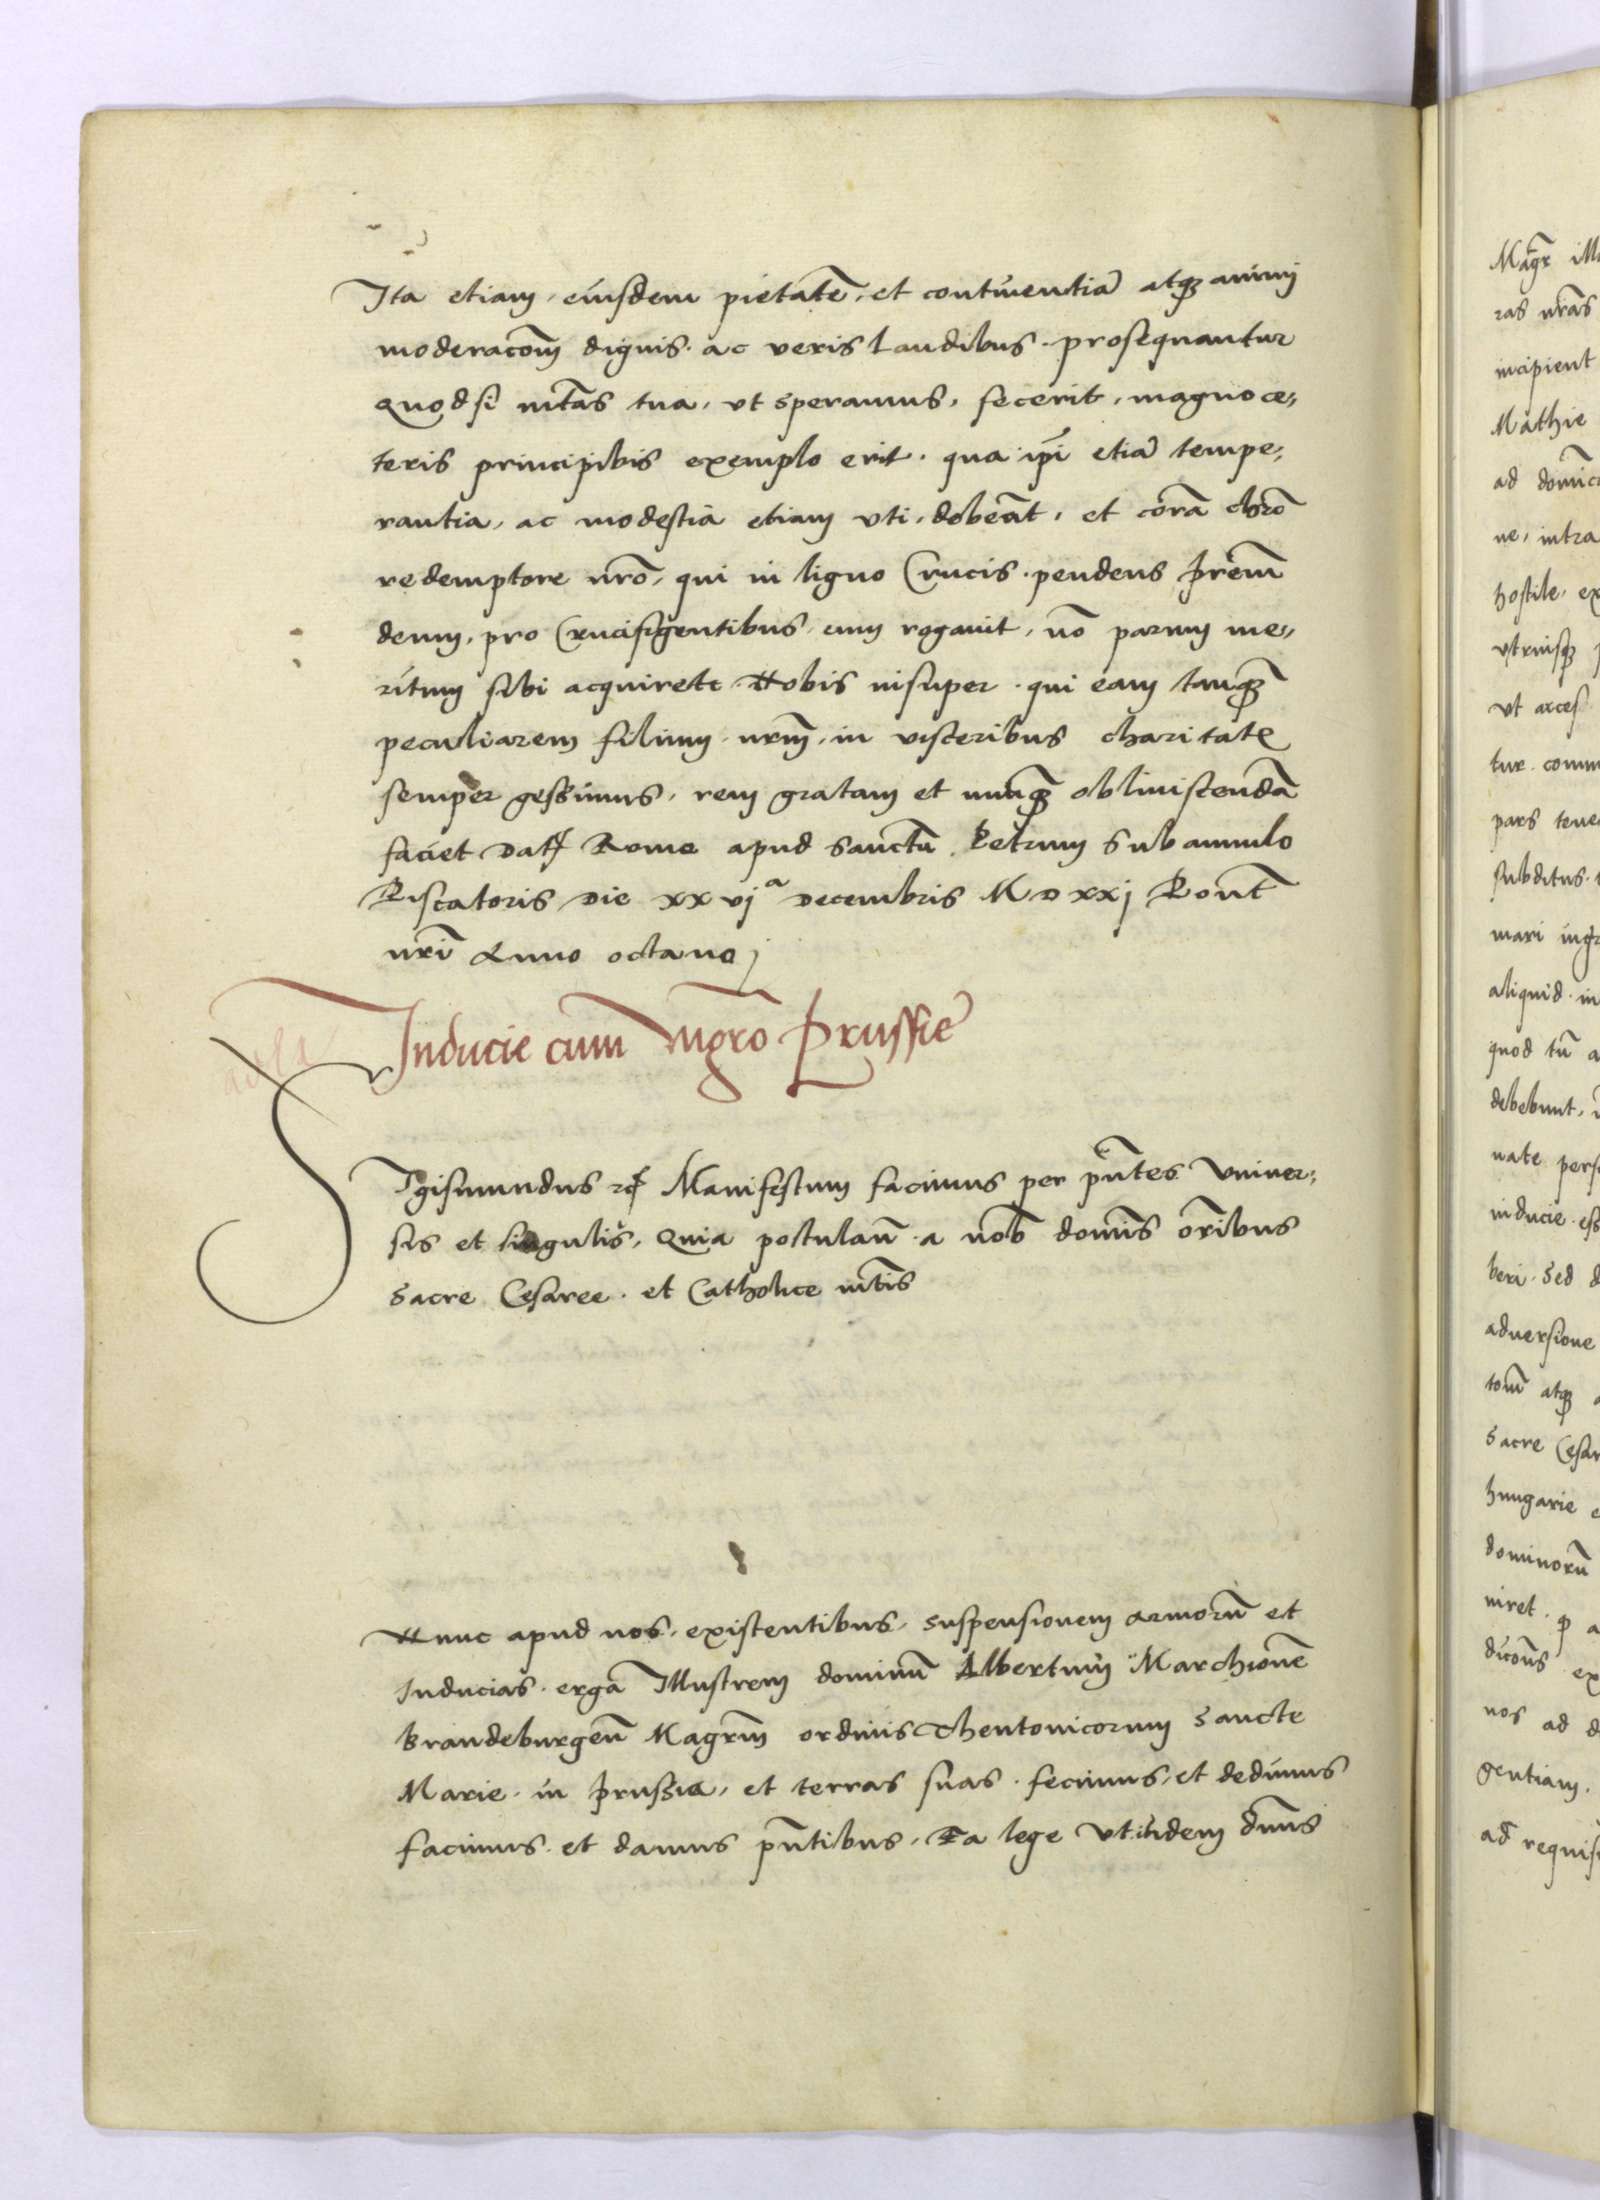 Ita etiam, eiusdem pietatē, et continentiā atqꝫ animi
moderacōm̄ dignis. ac veris Laudibus. prosequantur
Quod si mtās tua, vt speramus, fecerit, magno ce„
teris principibus exemplo erit. qua ip̄i etiā tempe„
rantia, ac modestia etiam vti, debeāt, et corā chrō
redemptore nrō, qui in ligno Crucis. pendens Prēm
demum, pro Crucifigentibus, eum rogauit, nō parum me„
ritum sibi acquiret. Nobis insuper. qui eam tanqꝫ̄
peculiarem filium. nrm̄, in visceribus charitatꝭ
semper gessimus, rem gratam et nunqꝫ̄ obliuiscendā
faciet Datꝭ Rome apud Sanctū. Petrum Sub annulo
Piscatoris Die xxvjᵃ Decembris MDxxj Pont̄
nrī Anno octauo
Inducie cum Mgrō Prussie
SIgismundus ⁊cꝭ Manifestum facimus per pn̄tes Vniuer„
sis et singulis, Quia postulan̄. a nob̄ domīs or̄ibus
Sacre Cesaree. et Catholice mtīs
Nunc apud nos, existentibus, suspensionem armorū et
Inducias. erga Illustrem dominū Albertum Marchionē
Brandeburgen̄ Magrm̄ ordinis Theutonicorum Sancte
Marie. in Prussia, et terras suas. fecimus, et dedimus
facimus. et damus pn̄tibus, Ea lege Vt iidem dn̄s
Magr̄
ras nrās
incipient
Mathie
ad
ne, intra
hostile, ex
vtriusqꝫ
vt arces
tur. comm
pars tene
subditus
mari ingr
aliquid. in
quod tū a
debebunt,
nate pers
inducie. es
beri. Sed d
aduersione
atqꝫ
Sacre Cesar
hungarie
dominorū
niret.
ex
nos ad d
gentiam.
ad requis